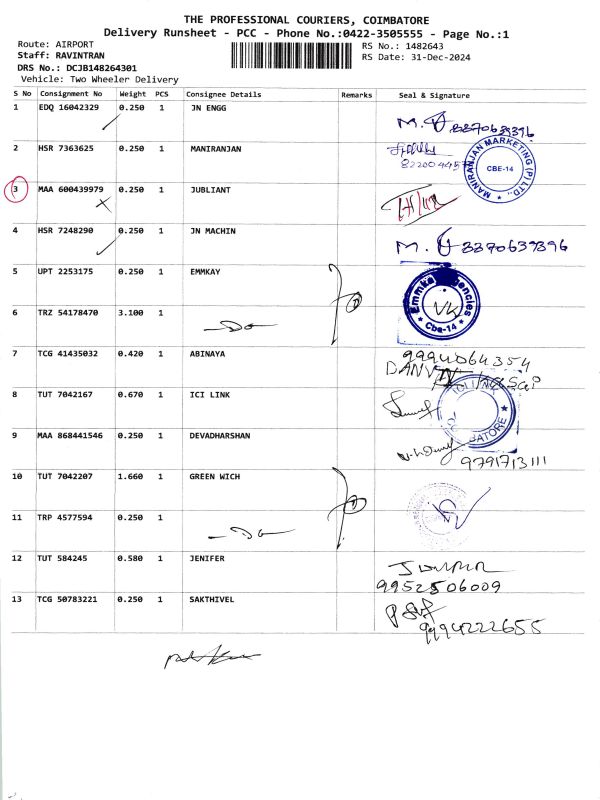 THE PROFESSIONAL COURIERS, COIMBATORE
Delivery Runsheet - PCC - Phone No.:0422-3505555 - Page No.:1
Route: AIRPORT
Staff: RAVINTRAN
DRS No.: DCJB148264301
Vehicle: Two Wheeler Delivery
RS No.: 1482643
RS Date: 31-Dec-2024
S No Consignment No Weight PCS Consignee Details Remarks Seal & Signature
1 EDQ 16042329 0.250 1 JN ENGG M. 8870639396
2 HSR 7363625 0.250 1 MANIRANJAN
MANIRANJAN MARKETING (P) LTD.,
CBE-14
3 MAA 600439979 0.250 1 JUBLIANT
4 HSR 7248290 0.250 1 JN MACHIN M. 8870639396
5 UPT 2253175 0.250 1 EMMKAY
Emmkay Agencies
VK
Cbe-14
6 TRZ 54178470 3.100 1
7 TCG 41435032 0.420 1 ABINAYA 9994064354
8 TUT 7042167 0.670 1 ICI LINK
9 MAA 868441546 0.250 1 DEVADHARSHAN
9791713111
10 TUT 7042207 1.660 1 GREEN WICH
11 TRP 4577594 0.250 1
12 TUT 584245 0.580 1 JENIFER
9952506009
13 TCG 50783221 0.250 1 SAKTHIVEL
9994222655